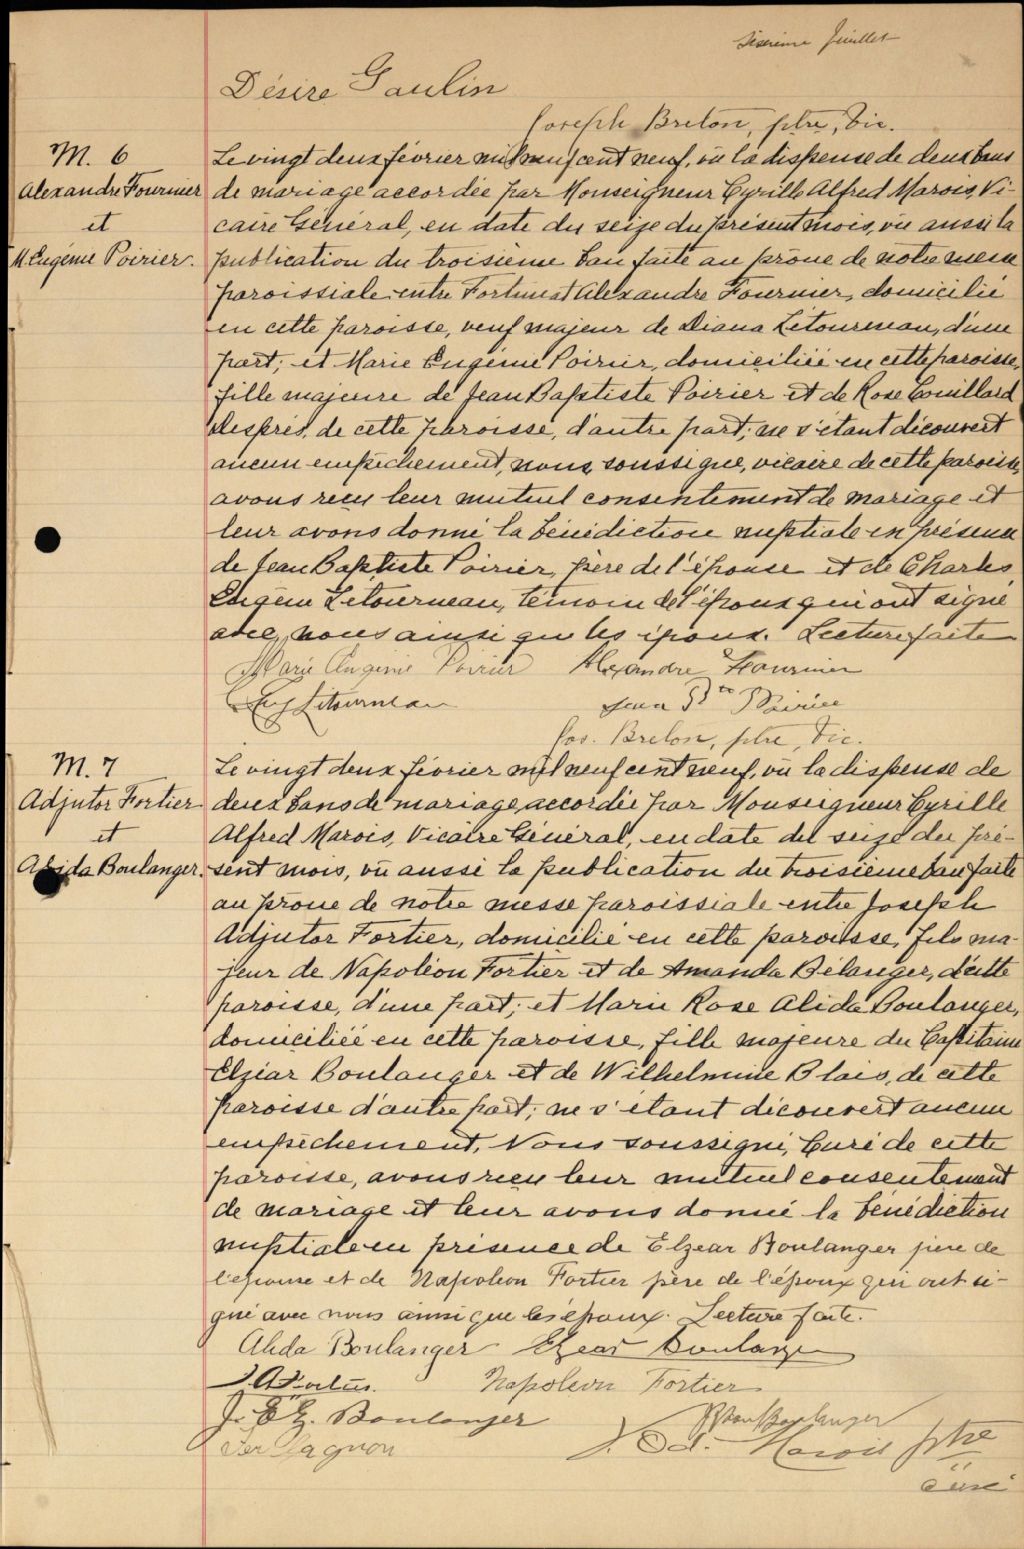 Sixième feuillet
Désiré Gaulin
Joseph Breton, ptre, Vic.
M. 6
Alexandre Fournier
et
M. Eugénie Poirier.
Le vingt deux février mil neuf cent neuf, vu la dispense de deux bans
de mariage accordée par Monseigneur Cyrille Alfred Marois, Vi-
caire Général, en date du seize du présent mois, vu aussi la
publication du troisième ban faite au prône de notre messe
paroissiale entre Fortunat Alexandre Fournier, domicilié
en cette paroisse, veuf majeur de Diana Létourneau, d'une
part; et Marie Eugénie Poirier, domiciliée en cette paroisse,
fille majeure de Jean Baptiste Poirier et de Rose Couillard
Després, de cette paroisse, d'autre part; ne s'étant découvert
aucun empêchement, nous, soussigné, vicaire de cette paroisse,
avons reçu leur mutuel consentement de mariage et
leur avons donné la bénédiction nuptiale en présence
de Jean Baptiste Poirier, père de l'épouse et de Charles
Eugène Letourneau, témoin de l'époux qui ont signé
avec nous ainsi que les époux. Lecture faite
Marie Eugénie Poirier Alexandre Fournier
Eug Létourneau Jean Bte Poirier
Jos. Breton, ptre, Vic.
M. 7
Adjutor Fortier
et
Alida Boulanger.
Le vingt deux février mil neuf cent neuf, vu la dispense de
deux bans de mariage, accordée par Monseigneur Cyrille
Alfred Marois, Vicaire Général, en date du seize du pré-
sent mois, vu aussi la publication du troisième ban faite
au prône de notre messe paroissiale entre Joseph
Adjutor Fortier, domicilié en cette paroisse, fils ma-
jeur de Napoléon Fortier et de Amanda Bélanger, de cette
paroisse, d'une part; et Marie Rose Alida Boulanger,
domiciliée en cette paroisse, fille majeure du Capitaine
Elzéar Boulanger et de Wilhelmine Blais, de cette
paroisse d'autre part; ne s'étant découvert aucun
empêchement, Nous soussigné, Curé de cette
paroisse, avons reçu leur mutuel consentement
de mariage et leur avons donné la bénédiction
nuptiale en présence de Elzear Boulanger père de
l'épouse et de Napoléon Fortier père de l'époux qui ont si-
gné avec nous ainsi que les époux. Lecture faite.
Alida Boulanger Elzear Boulanger
J A Fortier. Napoleon Fortier
J. E. E. Boulanger Boulanger
Gagnon J. Od. Marois ptre
curé